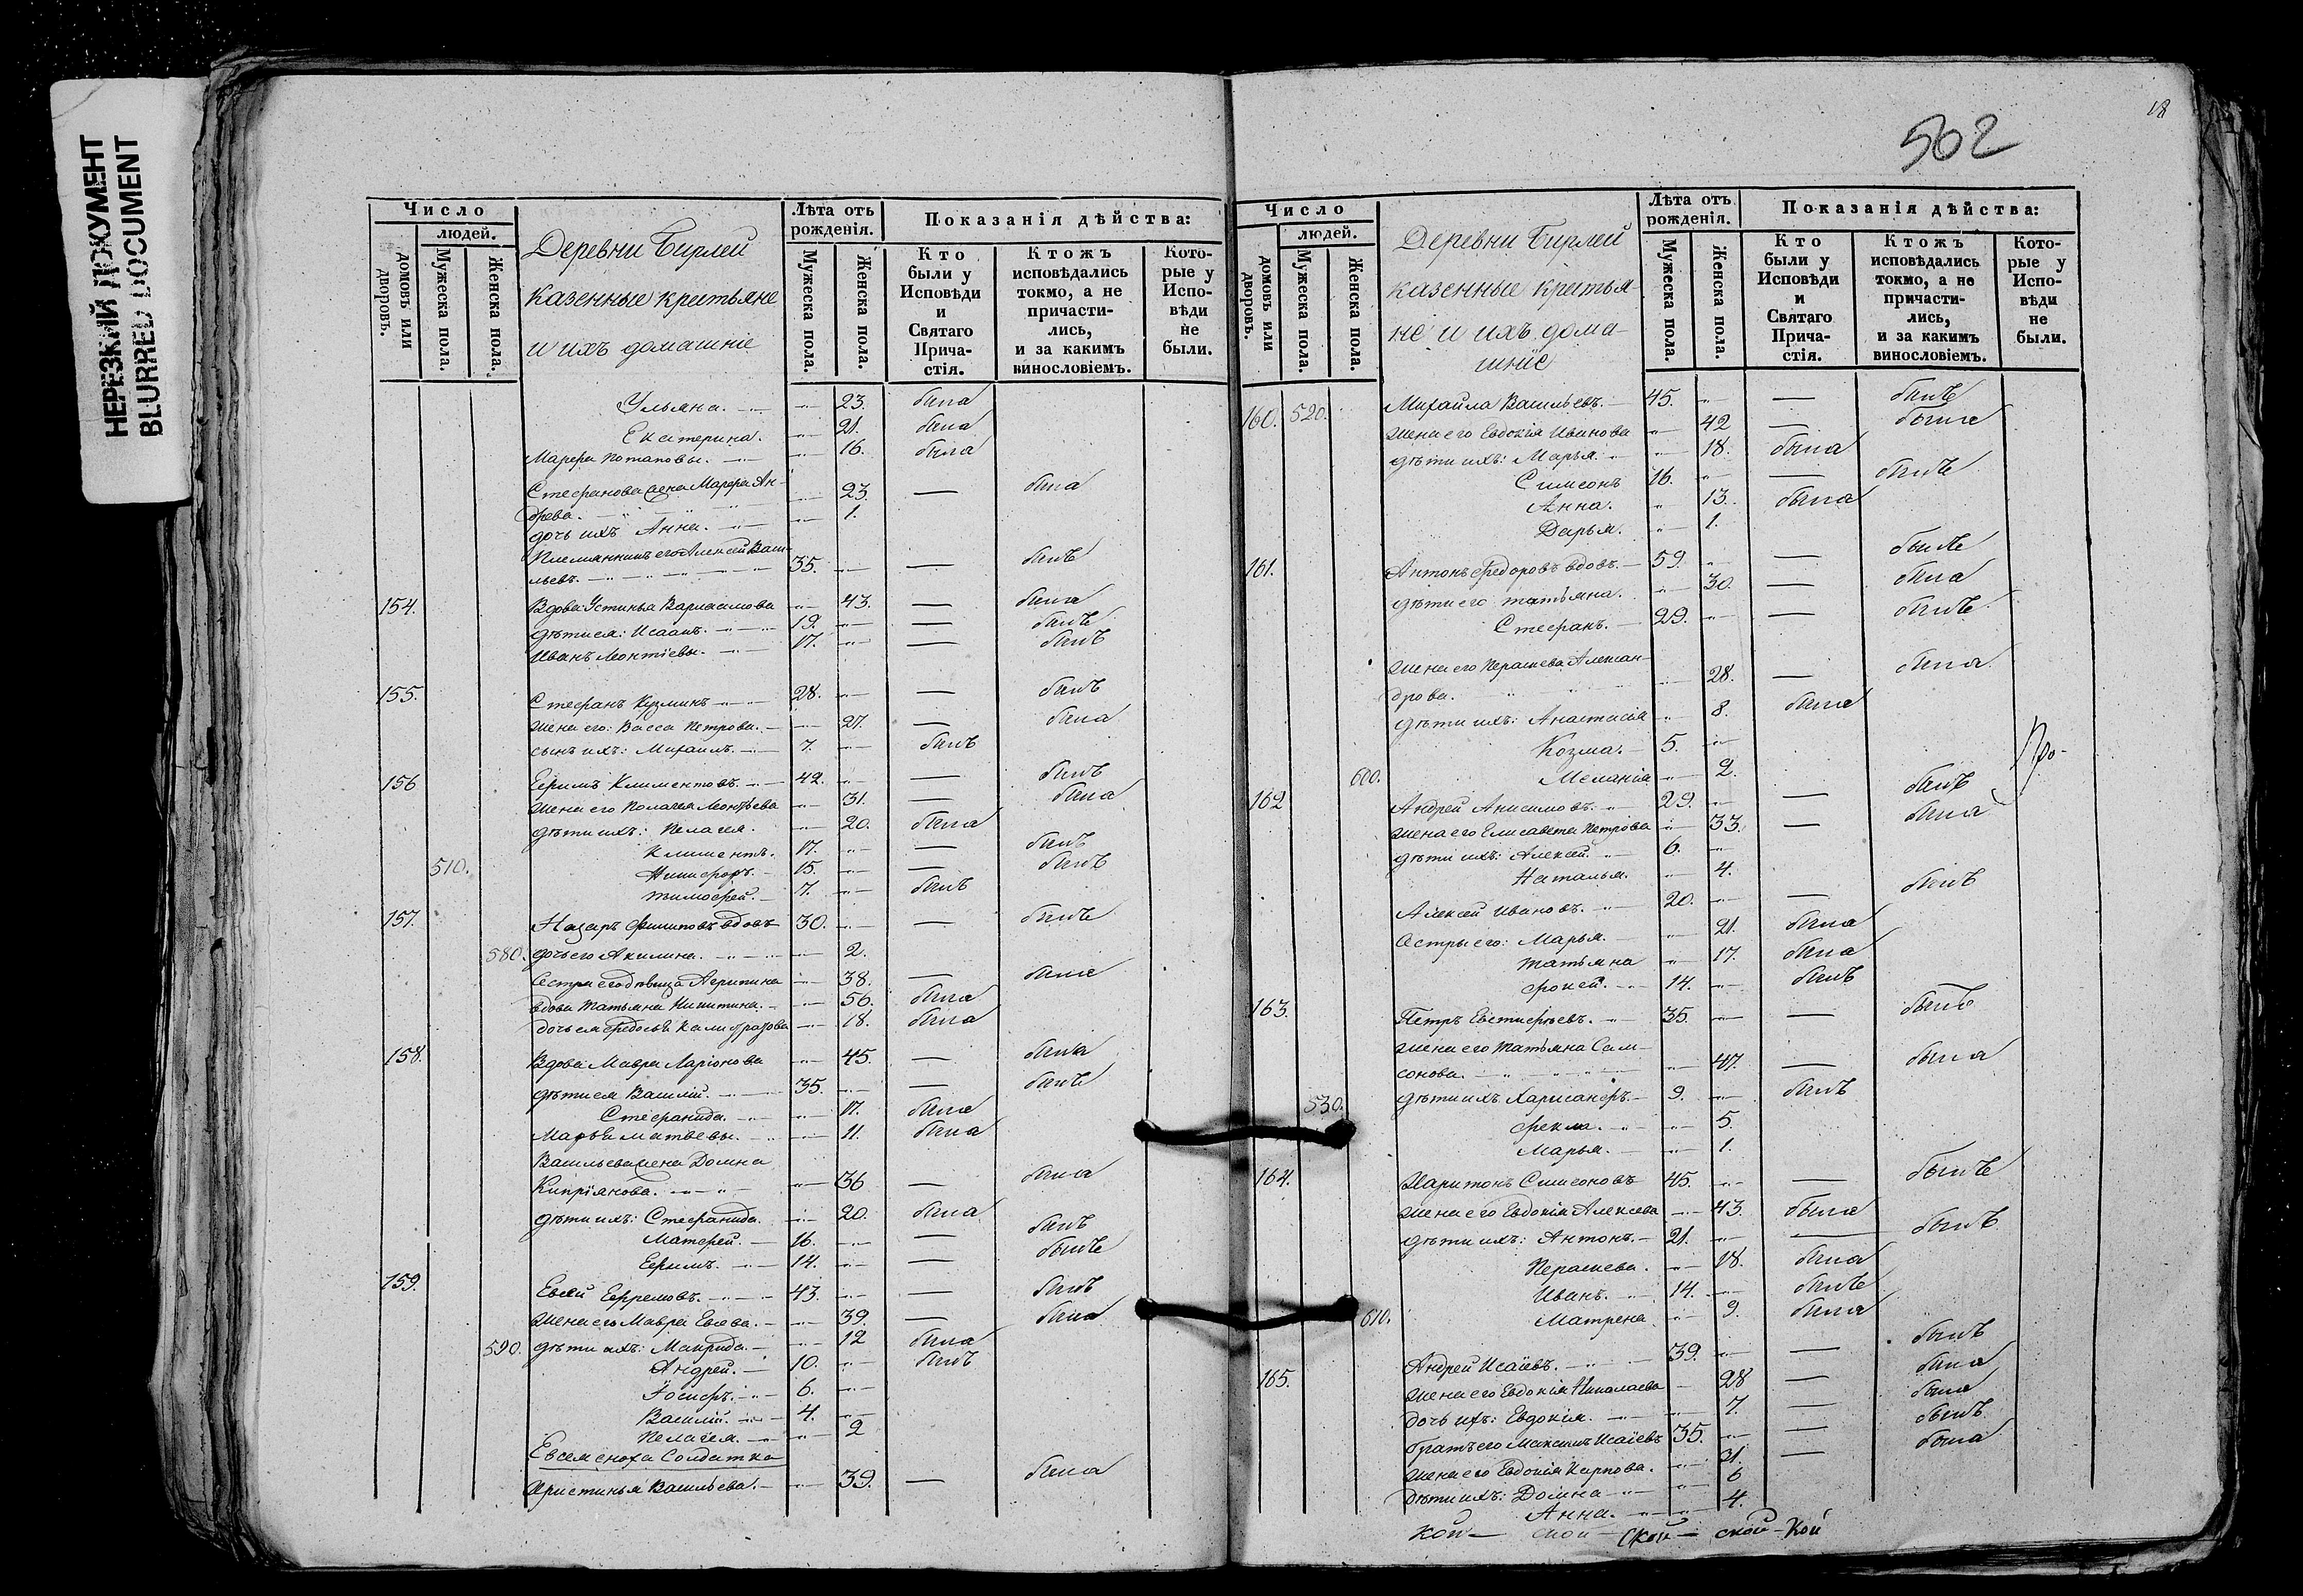 НЕРЕЗКИЙ ДОКУМЕНТ
BLURRED DOCUMENT
Число
людей.
домовъ или дворовъ.
Мужеска пола.
Женска пола.
Деревни Бирлей
казенные критьяне
и ихъ домашніе
Лѣта отъ рожденія.
Мужеска пола.
Женска пола.
Показанія дѣйства:
Кто были у Исповѣди и Святаго Прича-стія.
Ктожъ исповѣдались токмо, а не причасти-лись, и за какимъ винословіемъ.
Кото-рые у Испо-вѣди не были.
Ульяна. 23. была
Екатерина. 21. была
Марфа Потаповы. 16. была
Стефанова жена Марфа Ан-
древа. 23. — была
дочь ихъ Анна. 1.
Племянникъ его Алексей Васи-
льевъ. 35. — былъ
154. Вдова Устинья Варлаамова 43. — была
дѣти ея: Исаакъ. 19. — былъ
Иванъ Леонтіевы. 17. — былъ
155. Стефанъ Кузминъ 28. — былъ
жена его: Васса Петрова. 27. — была
сынъ ихъ: Михаилъ. 7. былъ
156 Ефимъ Климентовъ. 42. — былъ
жена его Пелагея Леонтьева 31. — была
дѣти ихъ: Пелагея. 20. была
Климентъ. 17. — былъ
510. Никифоръ. 15. — былъ
Тимофей. 7. былъ
157. Назаръ Филиповъ вдовъ 30. — былъ
580. дочь его Акилина. 2.
Сестра его дѣвица Агрипина 38. — была
вдова Татьяна Никитина. 56. была
дочь ея Федосья Калистратова 18. была
158. Вдова Мавра Ларіонова 45. — была
дѣти ея Василій. 35. — былъ
Стефанида. 17. была
Марья Матвевы. 11. была
Васильева жена Домна
Кипріянова. 36 — была
дѣти ихъ: Стефанида. 20. была
Матфей. 16. — былъ
Ефимъ. 14. — былъ
159. Евсей Ефремовъ. 43. — былъ
жена его Мавра Евсева. 39. — была
590. дѣти ихъ: Макрида. 12 была
Андрей. 10. былъ
Іосифъ. 6.
Василій. 4.
Пелагея. 2
Евсеменоха Солдатка
Христинья Васильева. 39. — была
18
502
Число
людей.
домовъ или дворовъ.
Мужеска пола.
Женска пола.
Деревни Бирлей
казенные критья
не и ихъ дома-
шніе
Лѣта отъ рожденія.
Мужеска пола.
Женска пола.
Показанія дѣйства:
Кто были у Исповѣди и Святаго Прича-стія.
Ктожъ исповѣдались токмо, а не причасти-лись, и за какимъ винословіемъ.
Кото-рые у Испо-вѣди не были.
160. 520. Михайла Васильевъ. 45. — былъ
жена его Евдокія Иванова 42 — была
дѣти ихъ: Марья. 18. была
Симеонъ 16. — былъ
Анна. 13. была
Дарья. 1.
161. Антонъ Федоровъ вдовъ. 59. — былъ
дѣти его Татьяна. 30. — была
Стефанъ. 29. — былъ
жена его Парасева Алексан-
дрова. 28. — была
дѣти ихъ: Анастасія 8. была
Козма. 5.
600. Меланія 2.
Про-
162. Андрей Анисимовъ. 29. — былъ
жена его Елисавета Петрова 33. — была
дѣти ихъ: Алексей. 6.
Наталья. 4.
Алексей Ивановъ. 20. — былъ
Сестры его: Марья. 21. была
Татьяна 17. была
Фокей. 14. былъ
163. Петръ Евстифѣевъ. 35. — былъ
жена его Татьяна Сам-
сонова. 47. — была
530. дѣти ихъ Харисанфъ. 9. былъ
Фекла. 5.
Марья. 1.
164. Харитонъ Симеоновъ 45. — былъ
жена его Евдокія Алексева 43. была
дѣти ихъ: Антонъ. 21. — былъ
Парасева. 18. была
Иванъ. 14. былъ
610. Матрена 9. была
165. Андрей Исаіевъ. 39. — былъ
жена его Евдокія Николаева 28 — была
дочь ихъ: Евдокія. 7. — была
братъ его Максимъ Исаіевъ 35. — былъ
жена его Евдокія Карпова. 31. — была
дѣти ихъ: Домна 6
Анна. 4.
кой — ской — ской — ской — кой